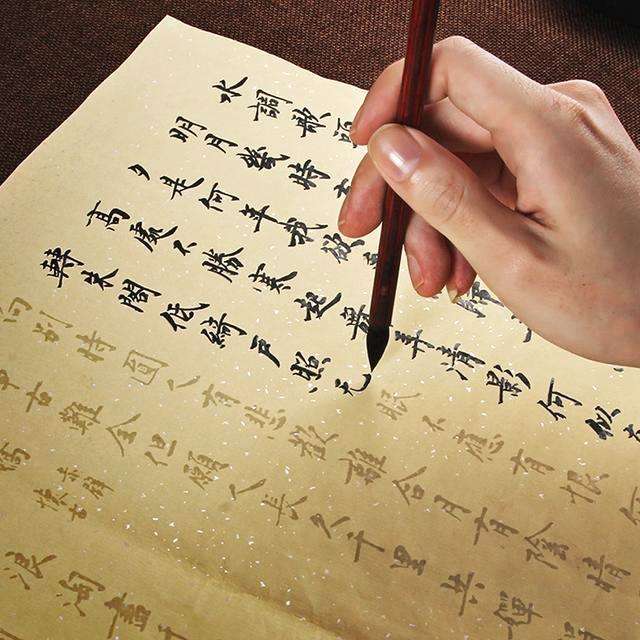 水調歌頭
明月幾時
夕是何年我欲
高處不勝寒起舞弄清影何似在
轉朱閣低綺戶照无眠不應有恨何
向別時圓人有悲歡離合月有陰晴
事古難全但願人長久千里共嬋
懷古
浪淘盡千